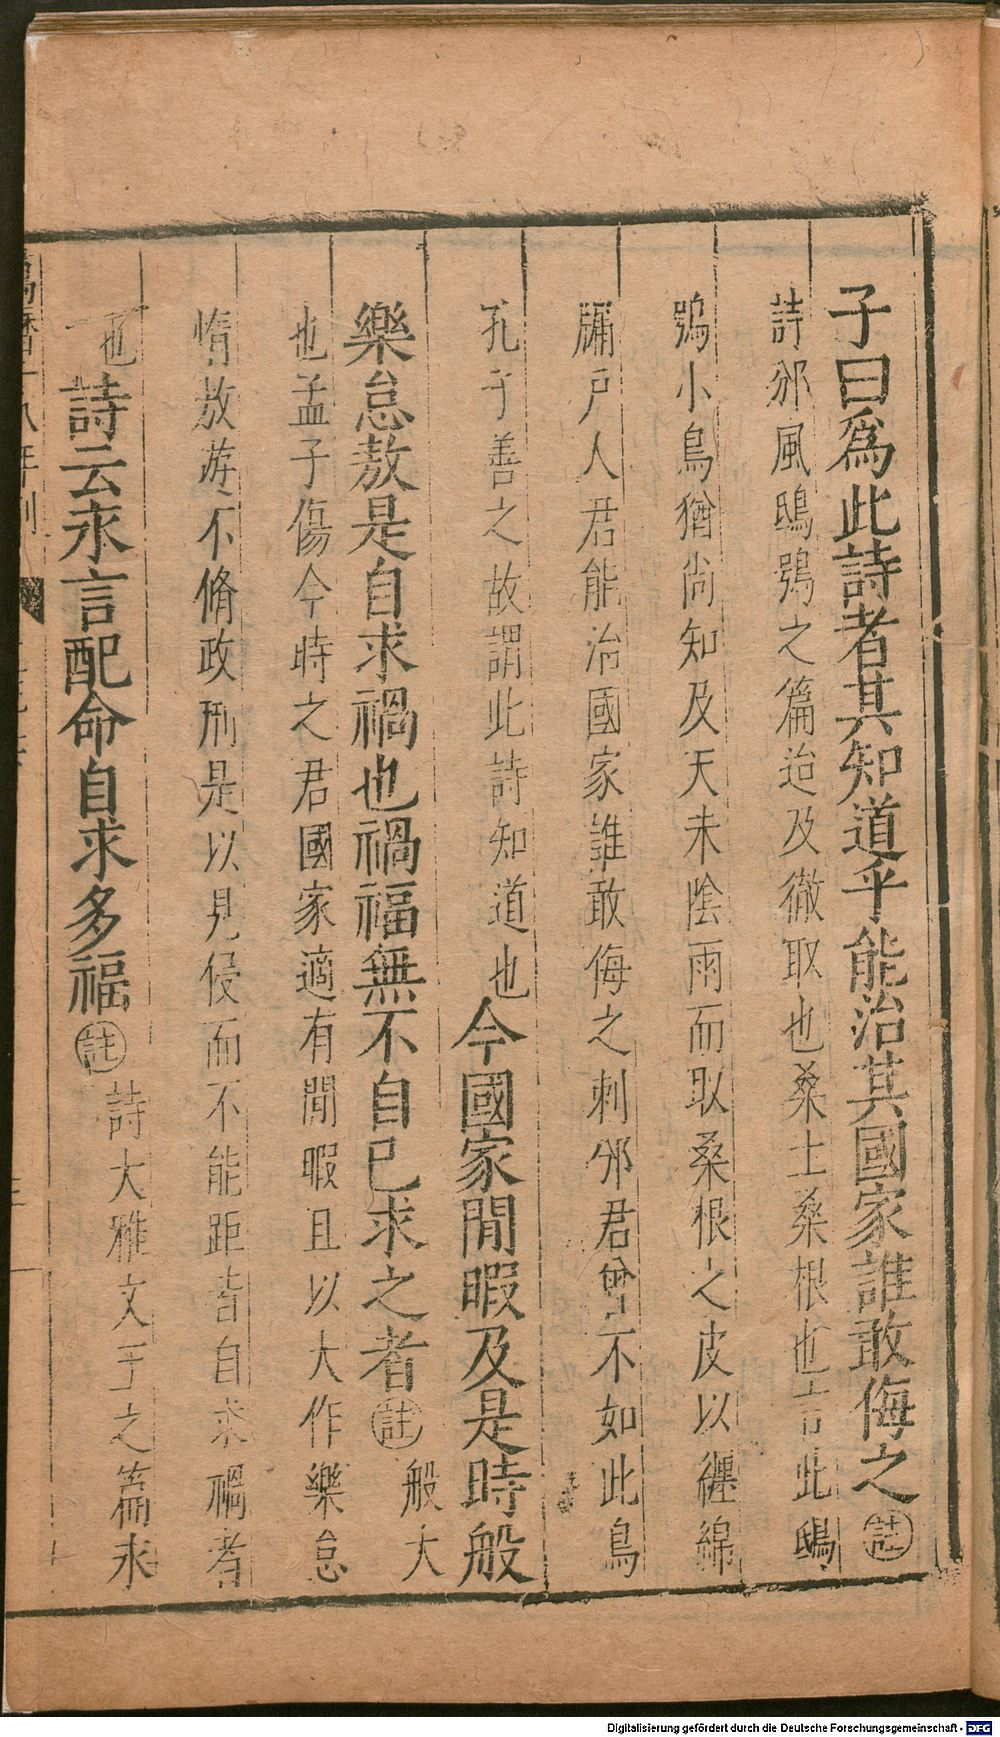 子曰爲此詩者其知道乎能治其國家誰敢侮之註
詩邠風鴟鴞之篇迨及徹取也桑土桑根也言此鴟
鴞小鳥猶尚知及天未陰雨而取桑根之皮以纏綿
牖戸人君能治國家誰敢侮之刺邠君曾不如此鳥
孔子善之故謂此詩知道也今國家閒暇及是時般
樂怠敖是自求禍也禍福無不自已求之者註般大
也孟子傷今時之君國家適有閒暇且以大作樂怠
惰敖遊不脩政刑是以見侵而不能距皆自求禍者
也詩云永言配命自求多福註詩大雅文王之篇永
萬曆十八年刊
Digitalisierung gefördert durch die Deutsche Forschungsgemeinschaft - DFG